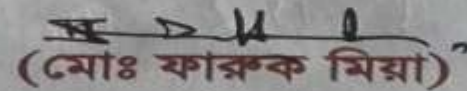 (মোঃ ফারুক মিয়া)